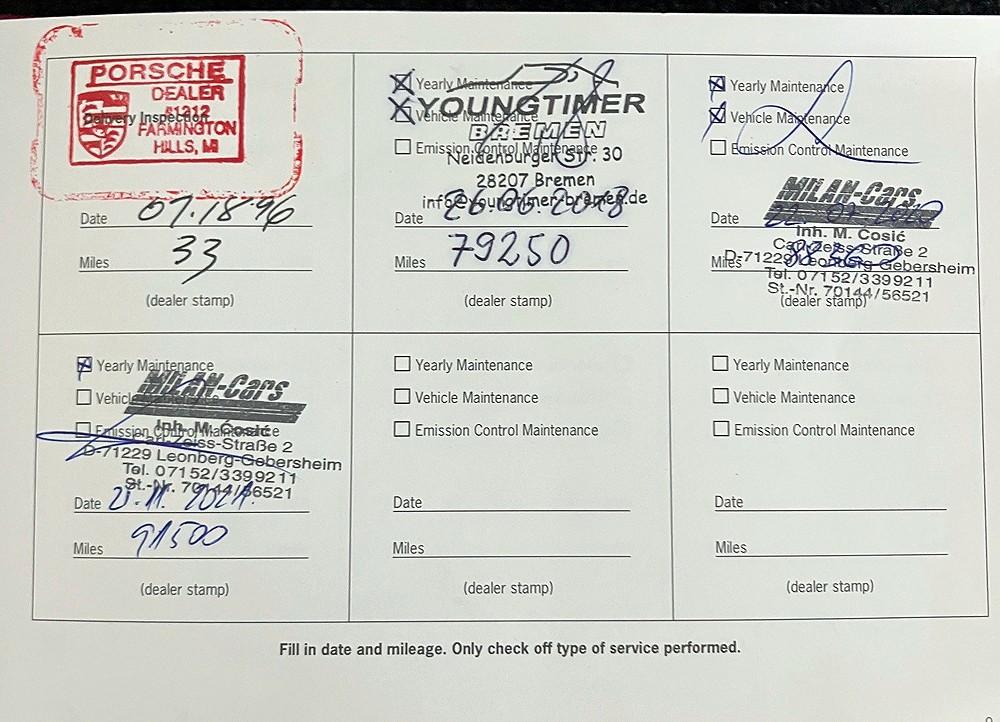 PORSCHE
DEALER
Delivery Inspection
FARMINGTON
HILLS, MI
Date 07.18 96
Miles 33
(dealer stamp)
Yearly Maintenance
Vehicle Maintenance
Emission Control Maintenance
YOUNGTIMER
BREMEN
Neidenburger Str. 30
28207 Bremen
info@youngtimer-bremen.de
Date 26.06.2018
Miles 79250
(dealer stamp)
Yearly Maintenance
Vehicle Maintenance
Emission Control Maintenance
MILAN-Cars
Date
Inh. M. Cosić
Carl-Zeiss-Straße 2
Miles
D-71229 Leonberg-Gebersheim
Tel. 07152/3399211
St.-Nr. 70144/56521
(dealer stamp)
Yearly Maintenance
Vehicle Maintenance
Emission Control Maintenance
MILAN-Cars
Inh. M. Cosić
Carl-Zeiss-Straße 2
D-71229 Leonberg-Gebersheim
Tel. 07152/3399211
St.-Nr. 70144/56521
Date 11. 2021.
Miles 91500
(dealer stamp)
Yearly Maintenance
Vehicle Maintenance
Emission Control Maintenance
Date
Miles
(dealer stamp)
Yearly Maintenance
Vehicle Maintenance
Emission Control Maintenance
Date
Miles
(dealer stamp)
Fill in date and mileage. Only check off type of service performed.